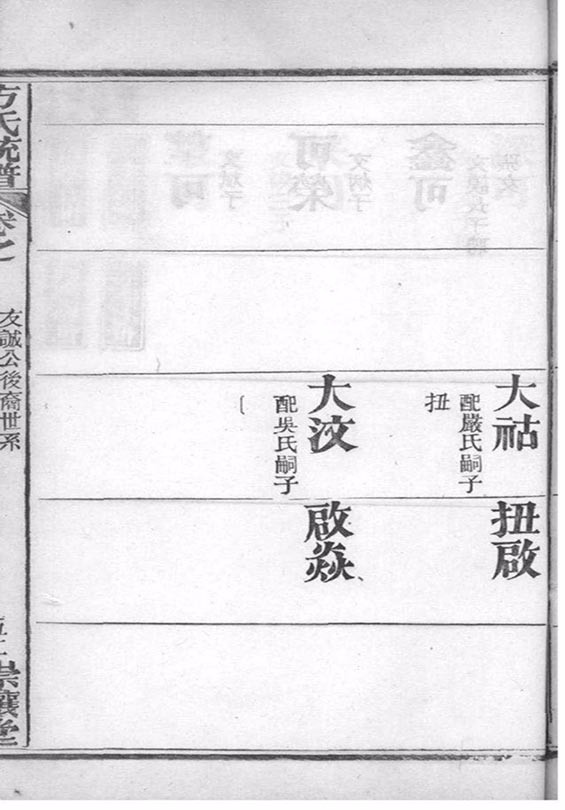 大祜
配嚴氏嗣子
扭
扭啟
大汶
配吳氏嗣子
啟焱
方氏統譜
卷之
友誠公後裔世系
崇讓堂